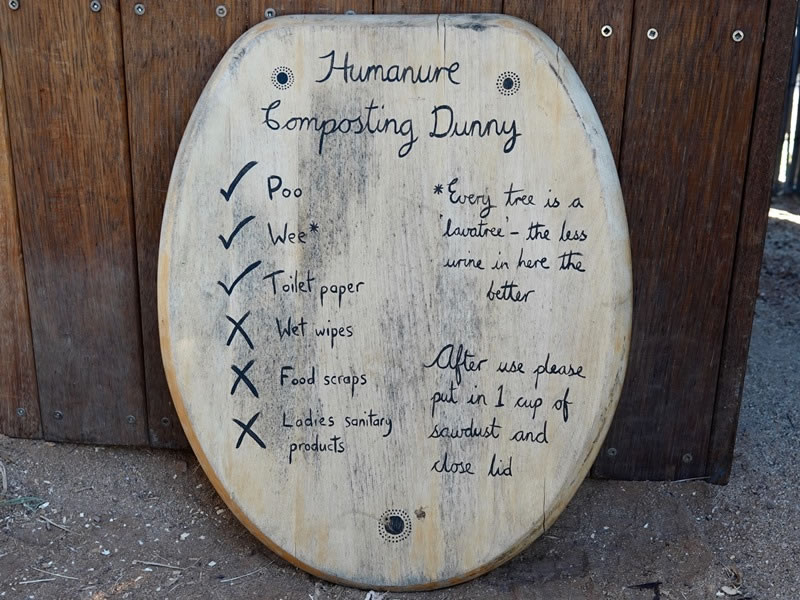 Humanure
Composting Dunny
✓ Poo
✓ Wee*
✓ Toilet paper
✗ Wet wipes
✗ Food scraps
✗ Ladies sanitary
products
*Every tree is a
'lavatree' - the less
urine in here the
better
After use please
put in 1 cup of
sawdust and
close lid